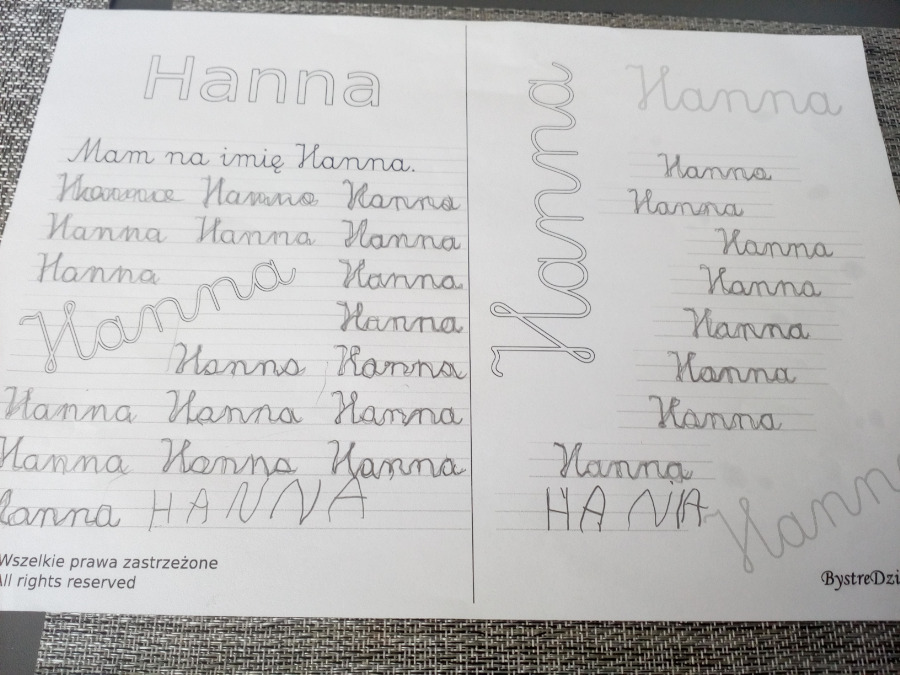 Hanna
Mam na imię Hanna.
Hanna Hanna Hanna
Hanna Hanna Hanna
Hanna Hanna
Hanna
Hanna
Hanna Hanna
Hanna Hanna Hanna
Hanna Hanna Hanna
Hanna HANNA
Wszelkie prawa zastrzeżone
All rights reserved
Hanna
Hanna
Hanna
Hanna
Hanna
Hanna
Hanna
Hanna
Hanna
Hanna
HANA
Hanna
BystreDzi